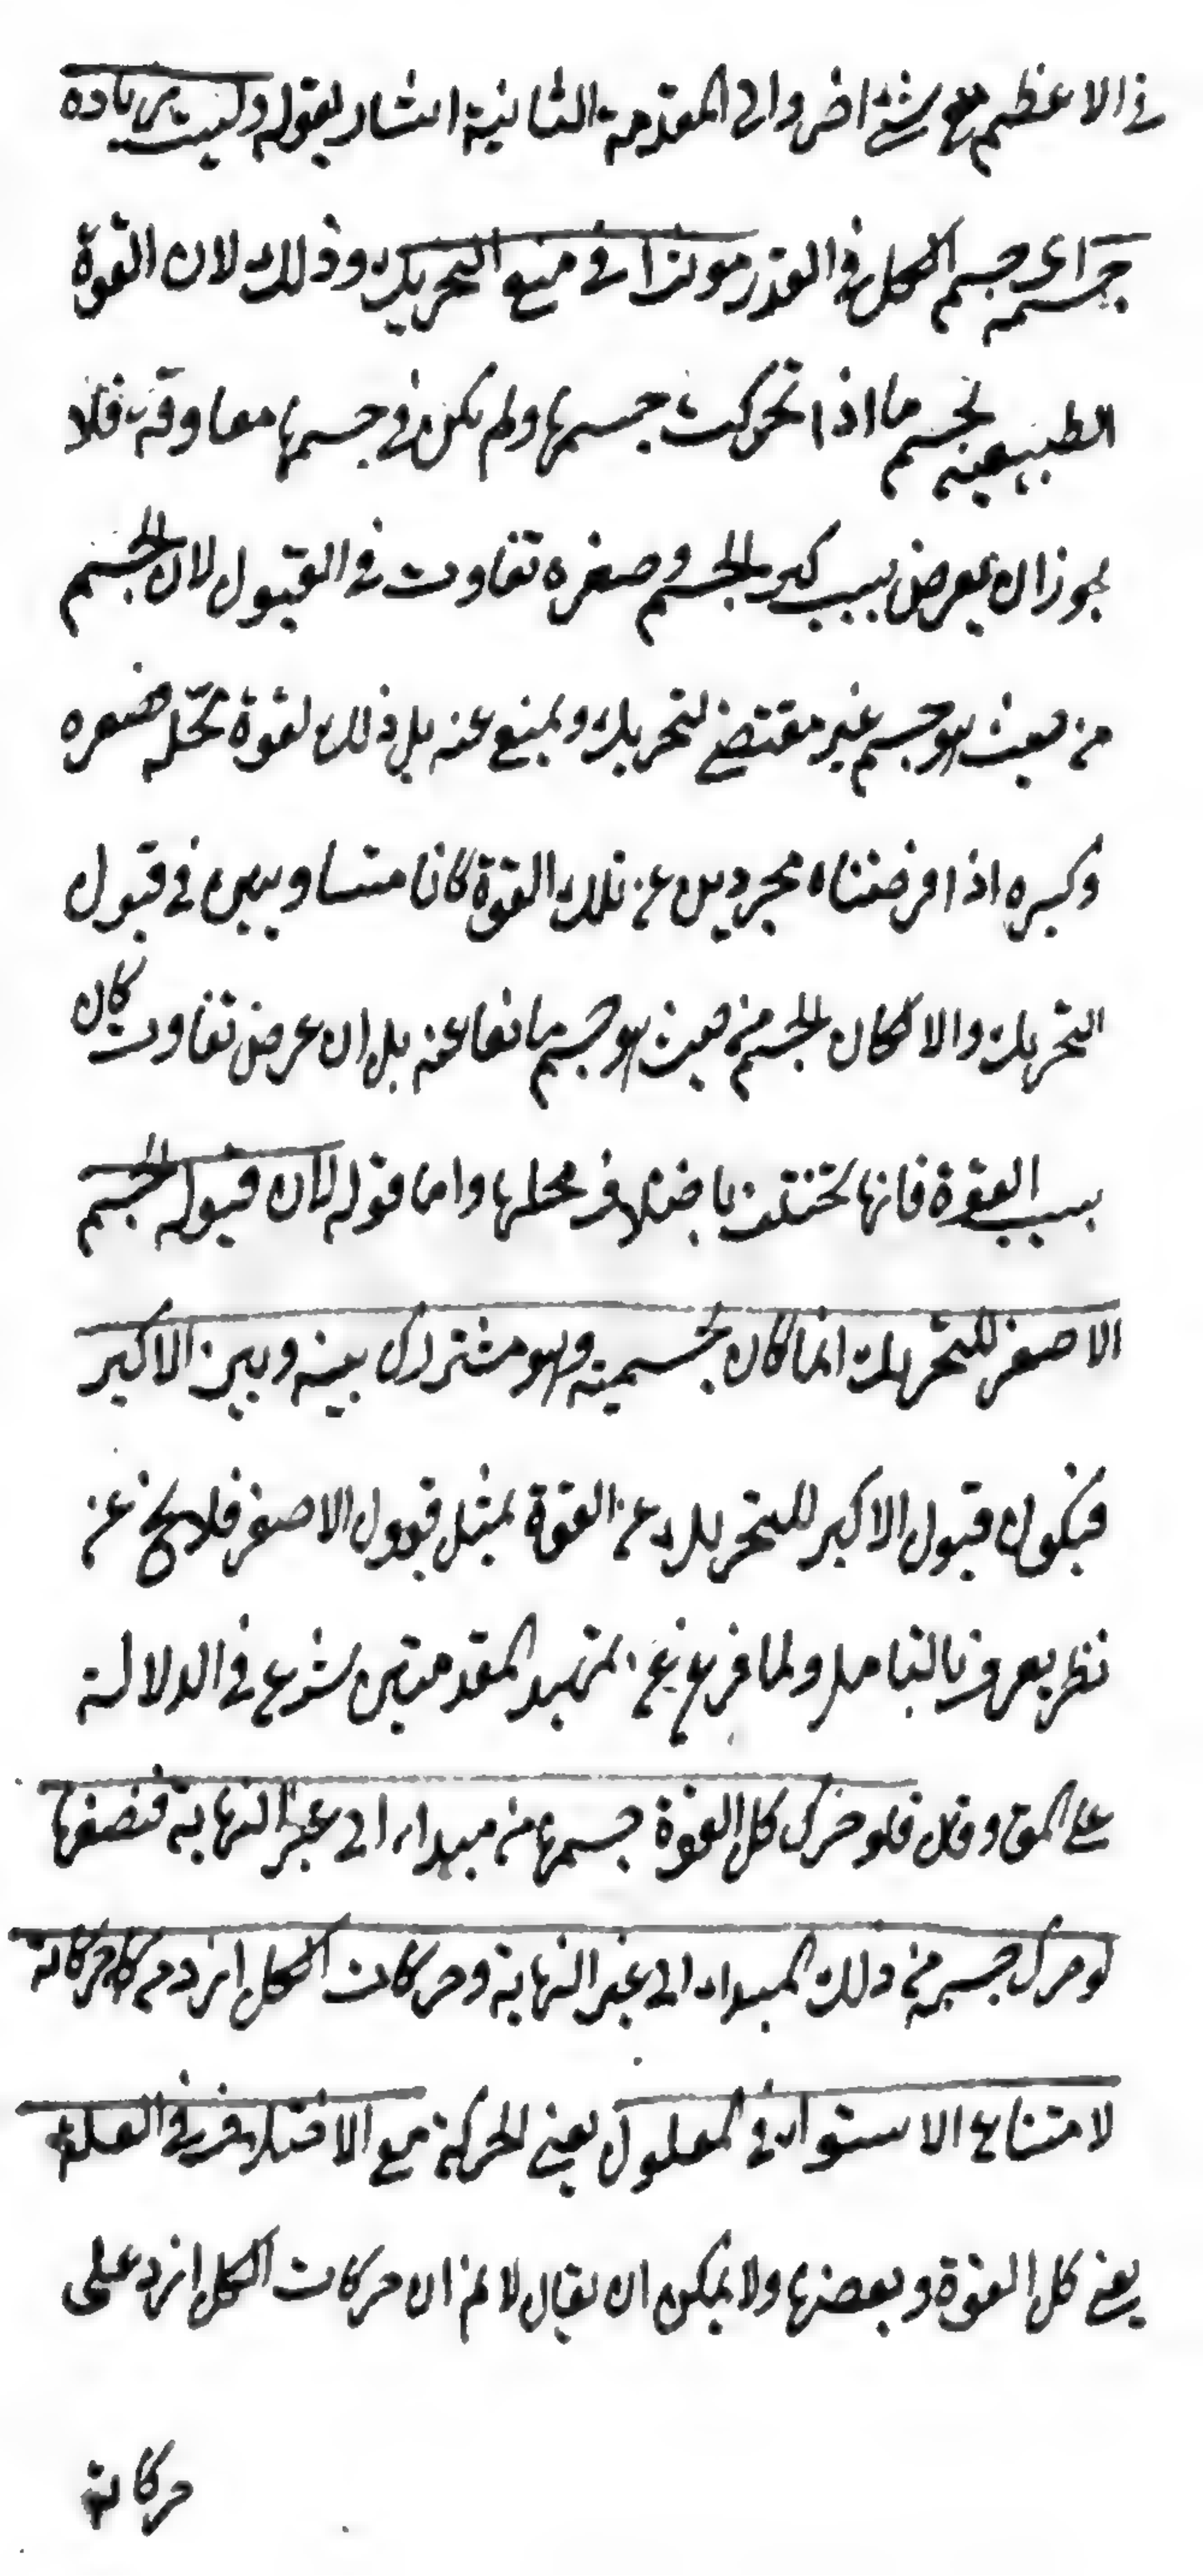 في الاعظم مع شئ اخر والى المقدمة الثانية اشار بقوله وليست زيادة
جسمه اى جسم الكل في القدر موثرا في منع التحريك وذلك لان القوة
الطبيعية لجسم ما اذا تحركت جسمها ولم يكن في جسمها معاوقة فلا
يجوز ان يعرض بسبب كبر الجسم وصغره تفاوت في القبول لان الجسم
من حيث هو جسم غير مقتض لتحريك ويمنع عنه بل ذلك لقوة تحله فصغره
وكبره اذا فرضناه مجردين عن تلك القوة كانا متساويين في قبول
التحريك والا لكان الجسم من حيث هو جسم مانعا عنه بل ان عرض تفاوت كان
بسبب القوة فانها تختلف باختلاف محلها واما قوله لان قبول الجسم
الاصغر للتحريك انما كان لجسميته وهو مشترك بينه وبين الاكبر
فيكون قبول الاكبر للتحريك عن القوة بمثل قبول الاصغر فلا يخ عن
نظر يعرف بالتامل ولما فرغ عن تمهيد المقدمتين شرع في الدلالة
على المق وقال فلو حرك كل القوة جسمها من مبداء الى غير النهاية فنصفها
لو حرك جسمه من ذلك المبداء الى غير النهاية وحركات الكل ازيد من حركاته
لامتناع الاستواء في المعلول يعني الحركة مع الاختلاف في العلة
يعني كل القوة وبعضها ولا يمكن ان يقال لا نم ان حركات الكل ازيد على
حركاته